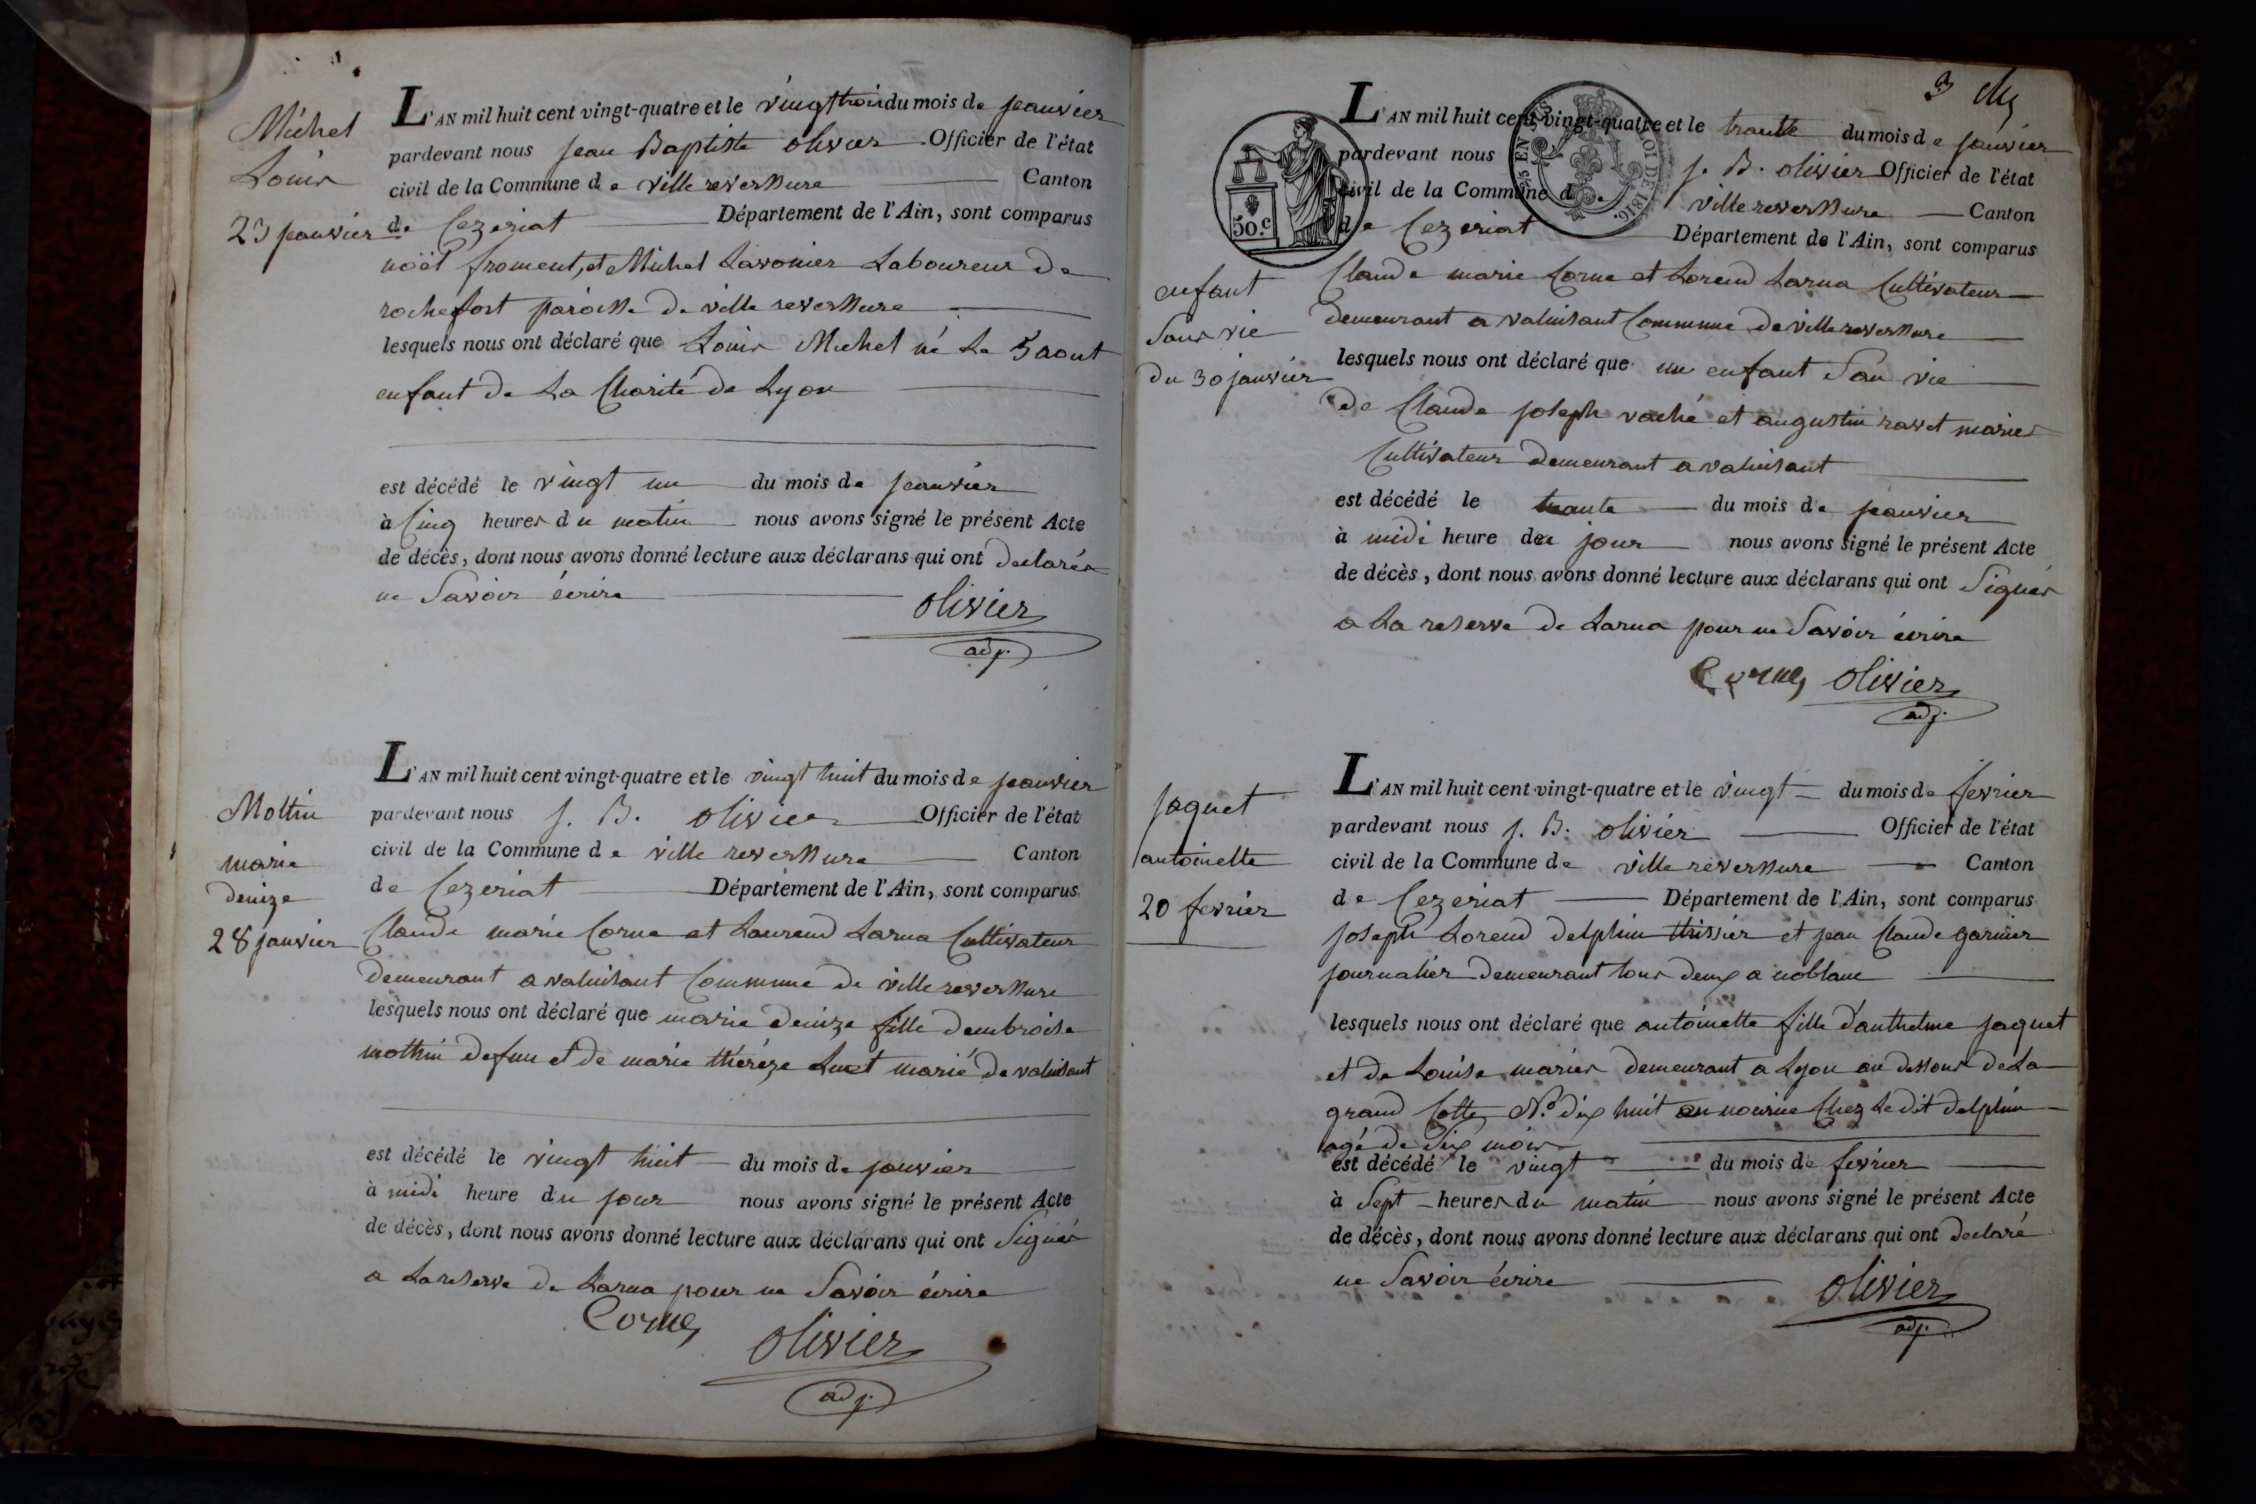 Michel
Louis
23 jeanvier
L'AN mil huit cent vingt-quatre et le vingt trois du mois de jeanvier
pardevant nous jean Baptiste olivier Officier de l'état
civil de la Commune de ville reverssure Canton
de Cezeriat Département de l'Ain, sont comparus
noël froment, et Michel Lavonier Laboureur de
rochefort paroisse de ville reverssure
lesquels nous ont déclaré que Louis Michel né Le 5 aout
enfant de La Charité de Lyon
est décédé le vingt un du mois de jeanvier
à Cinq heures du matin nous avons signé le présent Acte
de décès, dont nous avons donné lecture aux déclarans qui ont declarés
ne Savoir écrire
olivier
adj.
Mottin
marie
denize
28 janvier
L'AN mil huit cent vingt-quatre et le vingt huit du mois de jeanvier
pardevant nous J. B. olivier Officier de l'état
civil de la Commune de ville reverssure Canton
de Cezeriat Département de l'Ain, sont comparus
Claude marie Corne et Laurend Larua Cultivateur
demeurant a valuisant Commune de ville reverssure
lesquels nous ont déclaré que marie denize fille dambroise
mottin defun et de marie thérèze Luet marié de valuisant
est décédé le vingt huit du mois de janvier
à midi heure du jour nous avons signé le présent Acte
de décès, dont nous avons donné lecture aux déclarans qui ont Signés
a La reserve de Larua pour ne Savoir écrire
Corne olivier
adj.
3
50.c
LOI DE 1816.
L'AN mil huit cent vingt-quatre et le trante du mois de janvier
pardevant nous J. B. olivier Officier de l'état
civil de la Commune de ville reverssure Canton
de Cezeriat Département de l'Ain, sont comparus
enfant
Sans vie
du 30 janvier
Claude marie Corne et Lorend Larua Cultivateur
demeurant a valuisant Commune de ville reverssure
lesquels nous ont déclaré que un enfant San vie
de Claude joseph vaché et augustin ravet mariés
Cultivateur demeurant a valuisant
est décédé le trante du mois de jeanvier
à midi heure de jour nous avons signé le présent Acte
de décès, dont nous avons donné lecture aux déclarans qui ont Signés
a La reserve de Larua pour ne Savoir écrire
Corne olivier
adj.
jaquet
antoinette
20 fevrier
L'AN mil huit cent vingt-quatre et le vingt du mois de fevrier
pardevant nous J. B. olivier Officier de l'état
civil de la Commune de ville reverssure Canton
de Cezeriat Département de l'Ain, sont comparus
joseph Lorend delphin thissier et jean Claude garnier
journalier demeurant tous deux a noblanc
lesquels nous ont déclaré que antoinette fille d'anthelme jaquet
et de Louise mariés demeurant a Lyon au dessous de La
grand Cotte, No. dix huit en nourice Chez Le dit delphin
agé de dix mois
est décédé le vingt du mois de fevrier
à Sept heures du matin nous avons signé le présent Acte
de décès, dont nous avons donné lecture aux déclarans qui ont declaré
ne Savoir écrire
olivier
adj.